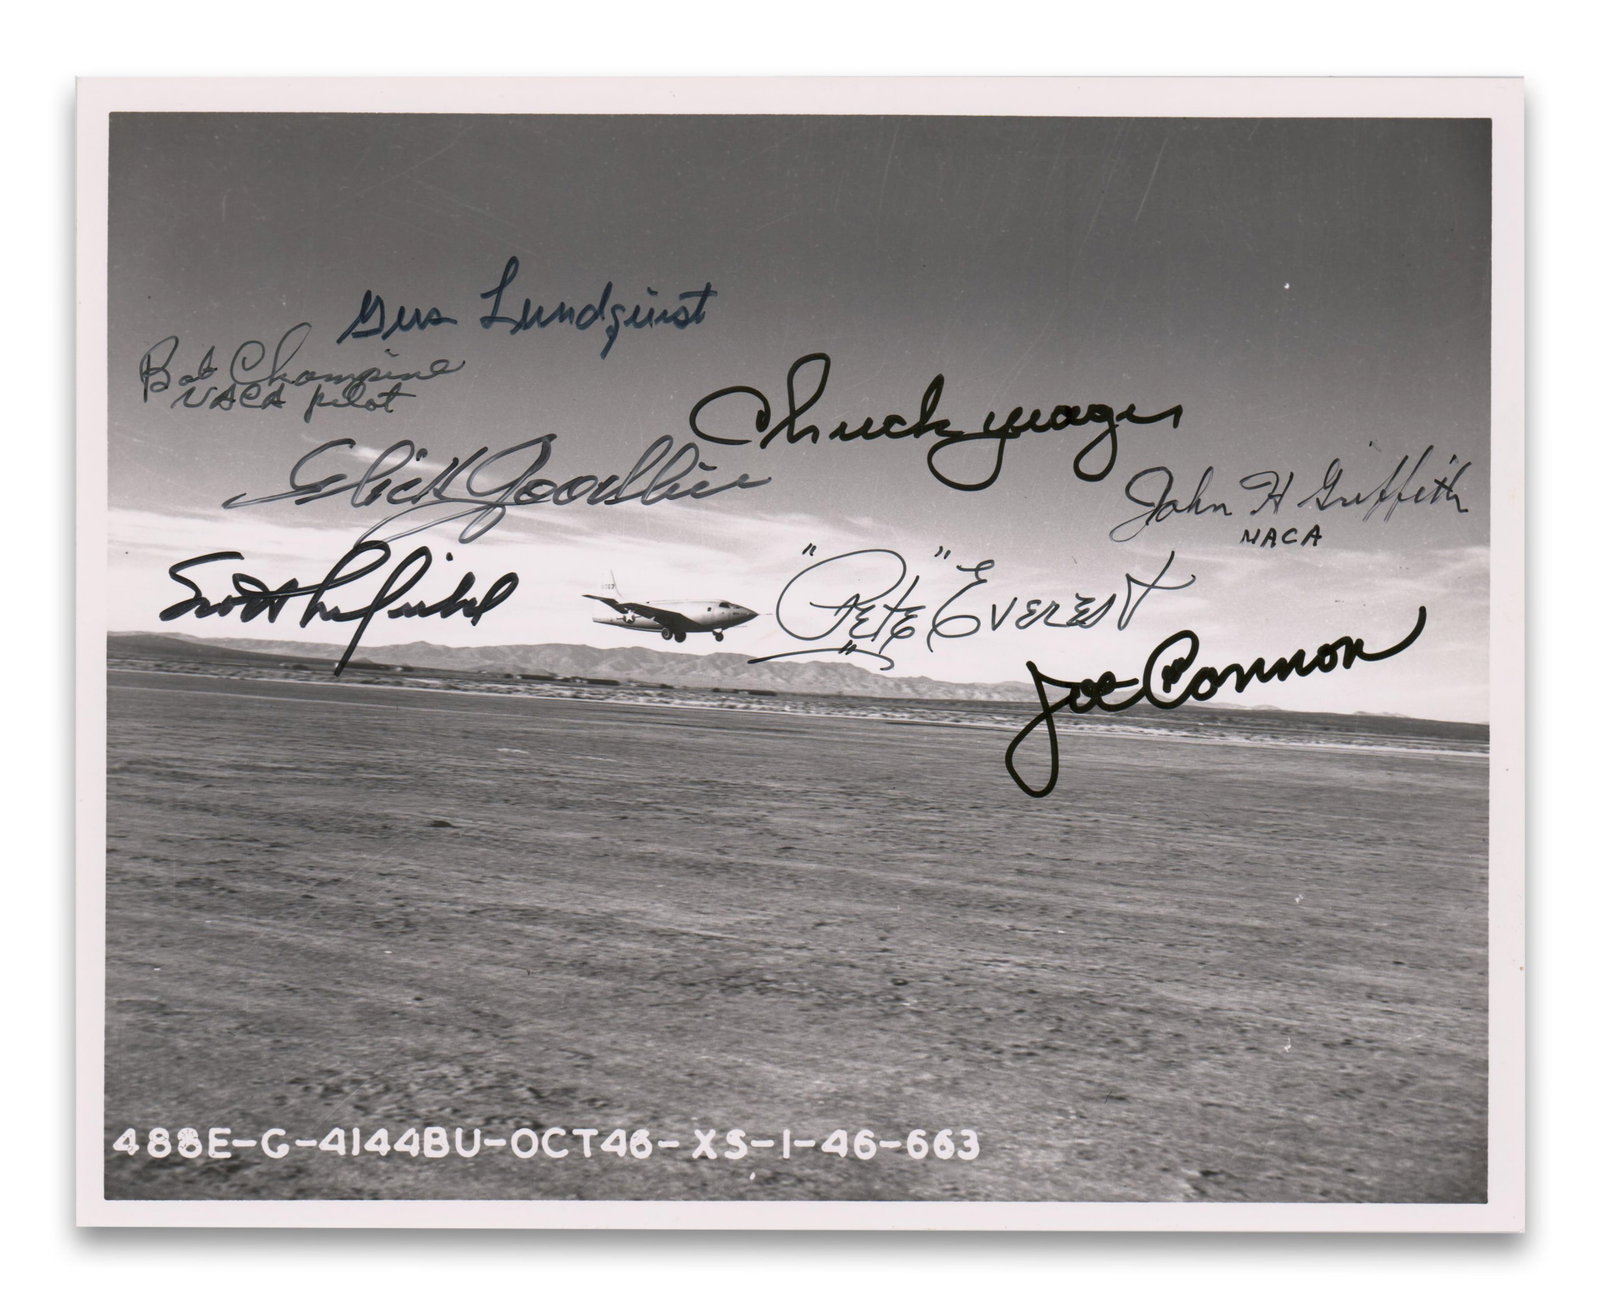 Gus Lundquist
Bob Champine
NACA pilot
Chuck Yeager
Slick Goodlin
John H Griffith
NACA
"Pete" Everest
Joe Cannon
488E-G-4144BU-OCT46-XS-1-46-663